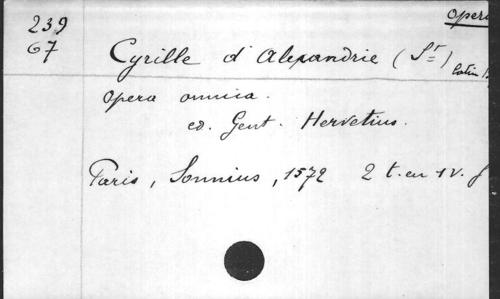 Opera
239
67
Cyrille d'Alexandrie (St)
latin
Opera omnia.
ed. Gent. Hervetius.
Paris, Sonnius, 1572 2 t. en 1 v. f